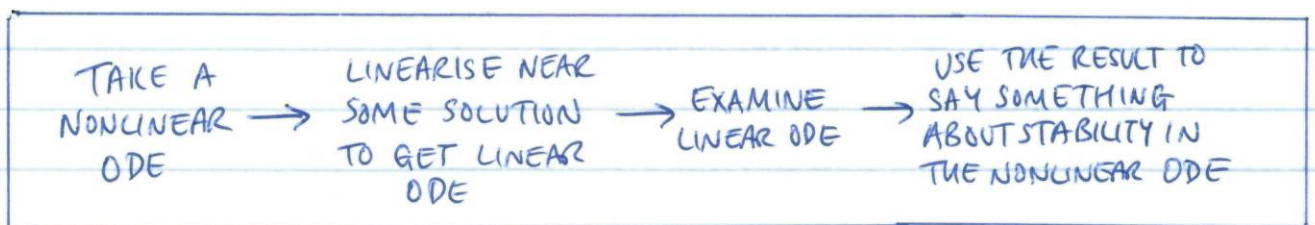 TAKE A
NONLINEAR
ODE
LINEARISE NEAR
SOME SOLUTION
TO GET LINEAR
ODE
EXAMINE
LINEAR ODE
USE THE RESULT TO
SAY SOMETHING
ABOUT STABILITY IN
THE NONLINEAR ODE